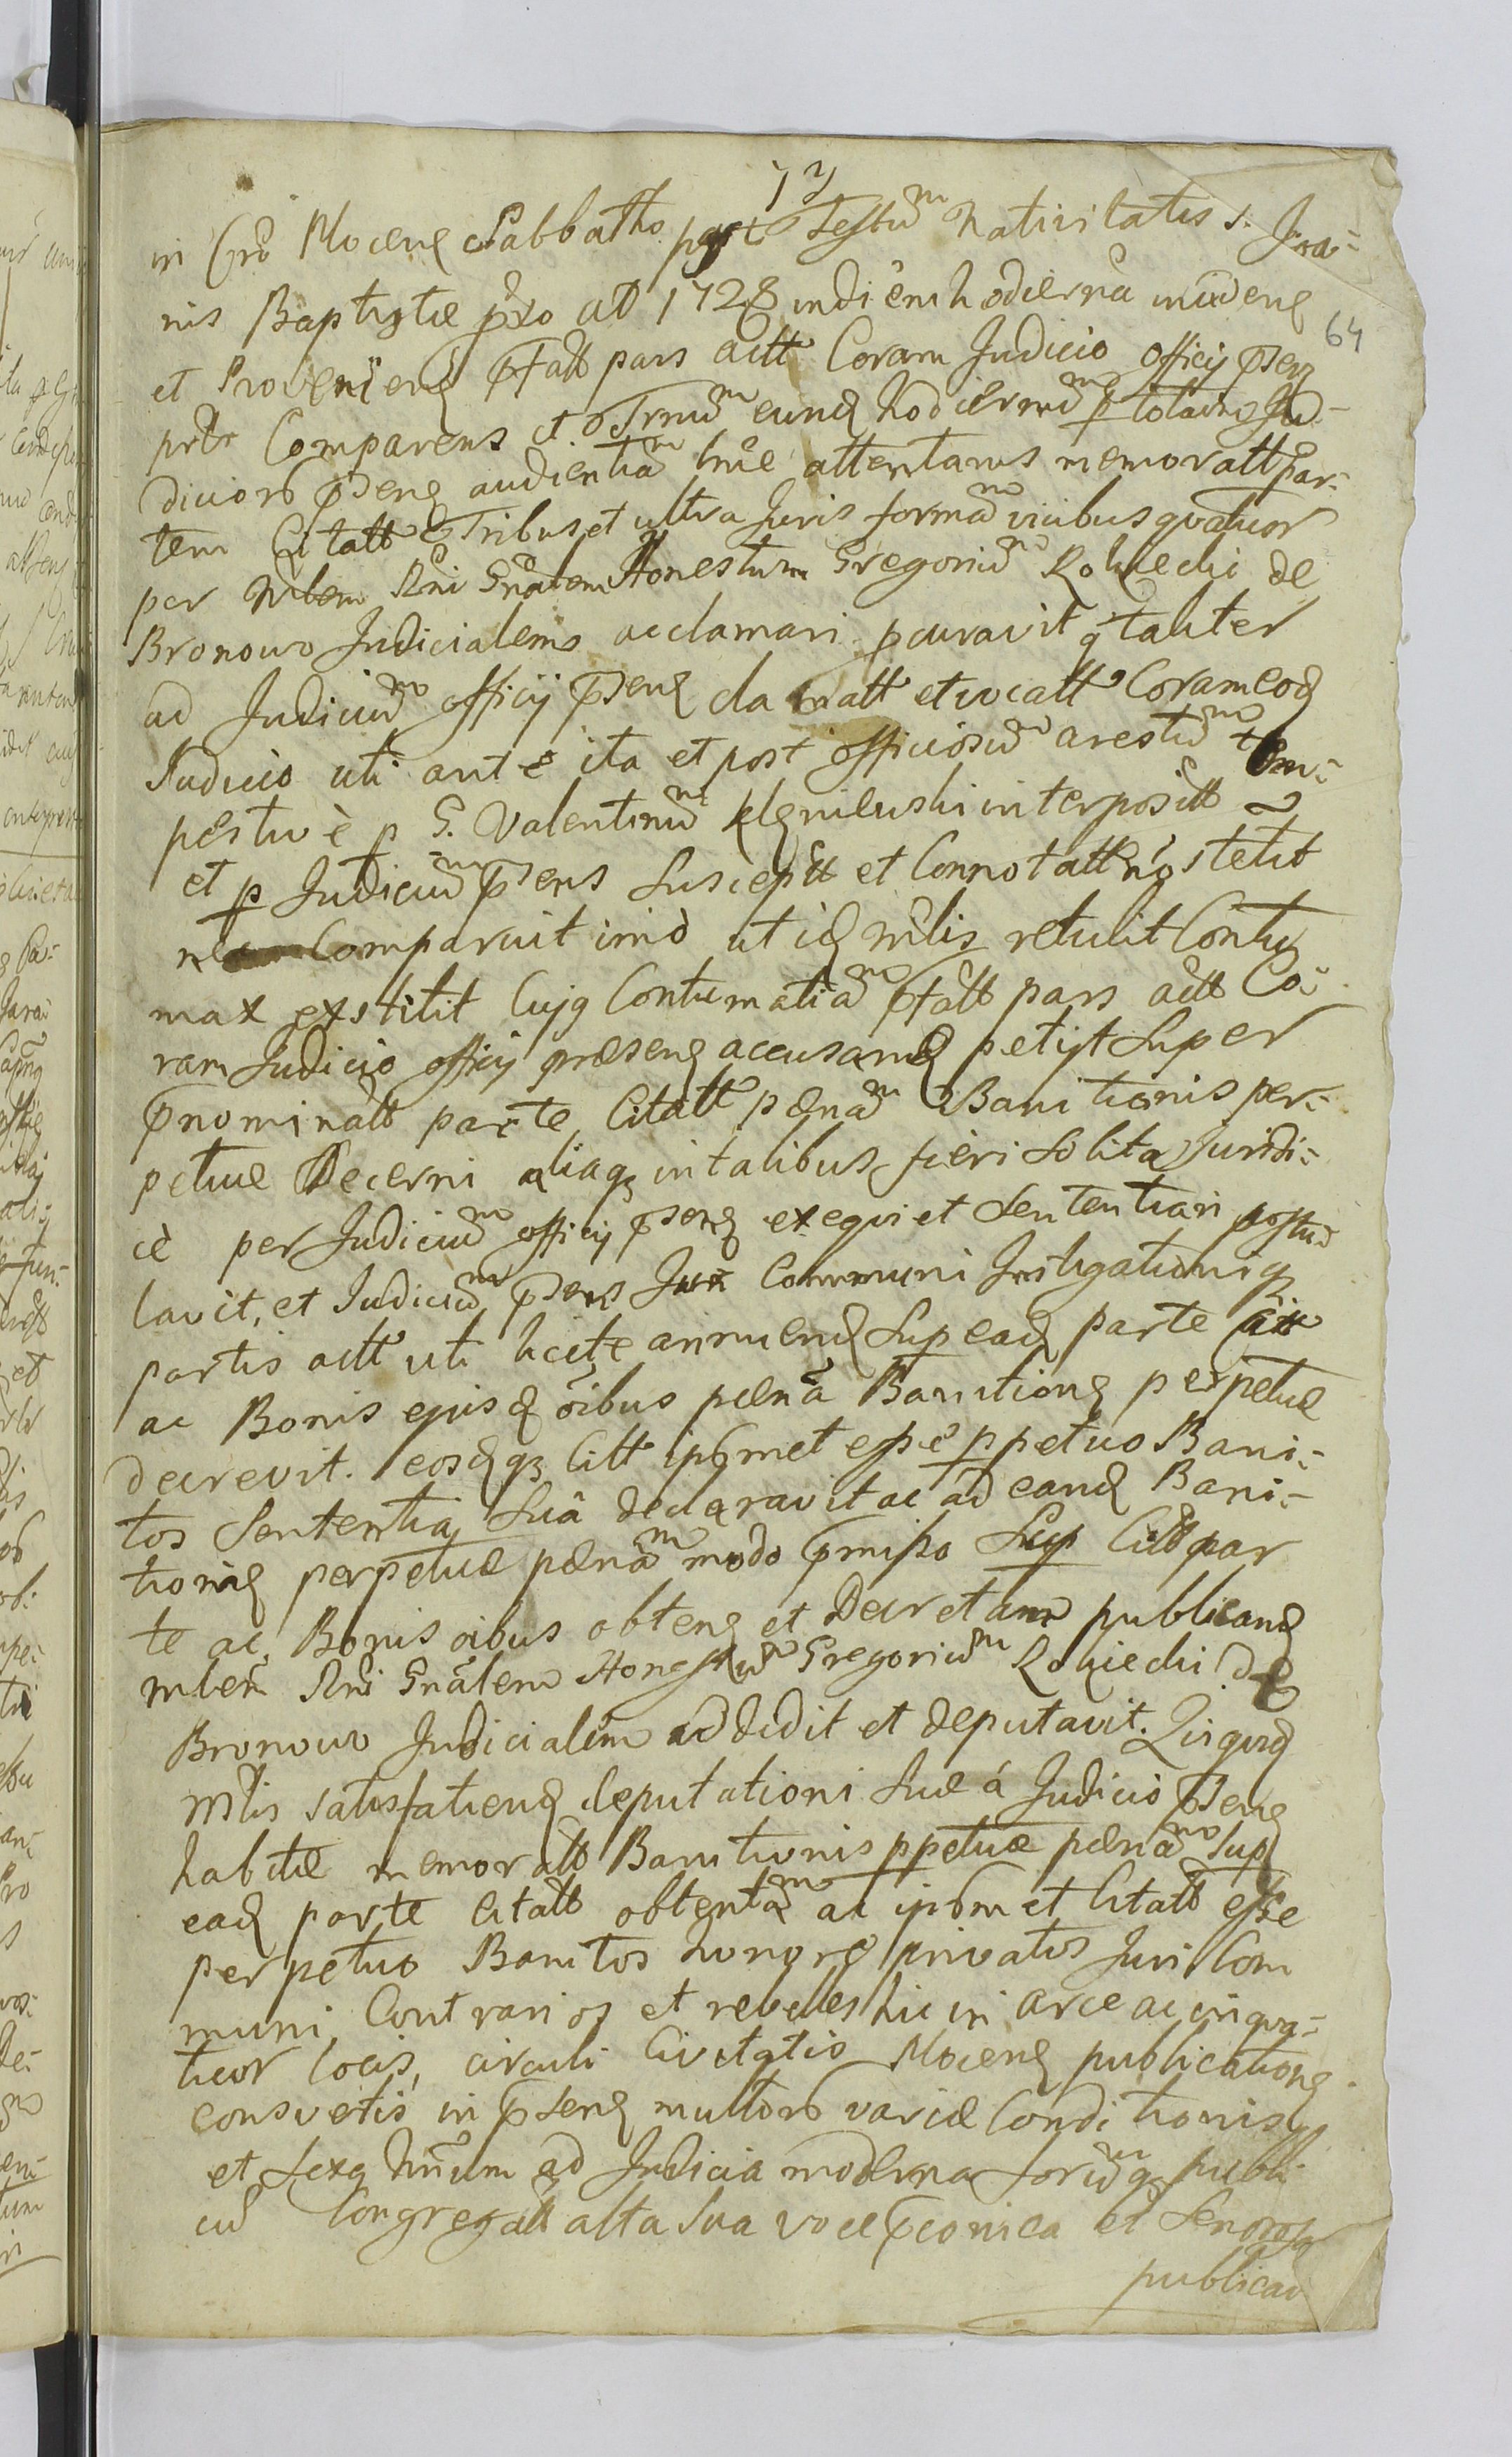 72
in Crō Plocens Sabbatho post Festū Nativitatis S. Joa-
nis Baptistæ pxo ad 1728 in diem hodiernā inciden
64
et Provenien pfatt pars actt Coram Judicio officij psen
prtr Comparens et Trnū eund hodiernū p totā Ju-
dicior psen audientiā bñe attentans memoratt par-
tem Citatt Tribus et ultra Juris formā vicibus qvatuor
per Mlem Rni Gnalem Honestum Gregoriū de
Bronowo Judicialem acclamari pcuravit q taliter
ad Judiciū officij psen clamatt et vocatt Coram eod
Judicio uti ante ita et post officiosū arestū tem-
pestivè p G. Valentinū interpositt
et p Judiciū psens Susceptt et Connotatt nō stetit
nec Comparuit imò ut id mlis retulit Contu
max exstitit Cujq Contumatiā pfatt pars actt Co-
ram Judicio officij præsen accusand petijt Super
pnominatt parte Citatt pænā Banitionis per-
petuæ Decerni aliaq in talibus fieri Solita Juridi-
cè per Judiciū officij psen exeqvi et Sententiari postu
lavit, et Judiciū psens Juri Communi Instigationiq
partis actt uti licitæ annuend Sup ead parte Citt
ac Bonis ejusd oibus pænā Banition perpetuæ
decrevit. eosdq Citt ipsmet esse ppetuo Bani-
tos Sententia Suâ declaravit ac ad eand Bani-
tionis perpetuæ pænā modo pmisso Sup Citt par
te ac Bonis oibus obten et Decretam publicand
mlem Rni Gnâlem Honestū Gregoriū de
Bronowo Judicialem addidit et deputavit. Qui qvid
Mlis satisfatiend deputationi Suæ à Judicio psen
habitæ memoratt Banitionis ppetuæ pænā Sup
ead parte Citatt obtentā ac ipsmet Citatt esse
perpetuo Banitos honore privatos Juri Com
muni Contrarios et rebelles hic in arce ac in qva-
tuor locis, circuli Civitatis Plocens publication
consvetis in psen multor variæ Conditionis
et Sexq hnum ad Judicia moderna forūq publi
cū Congregatt alta Sua voce pconica et Senorosa
publicav